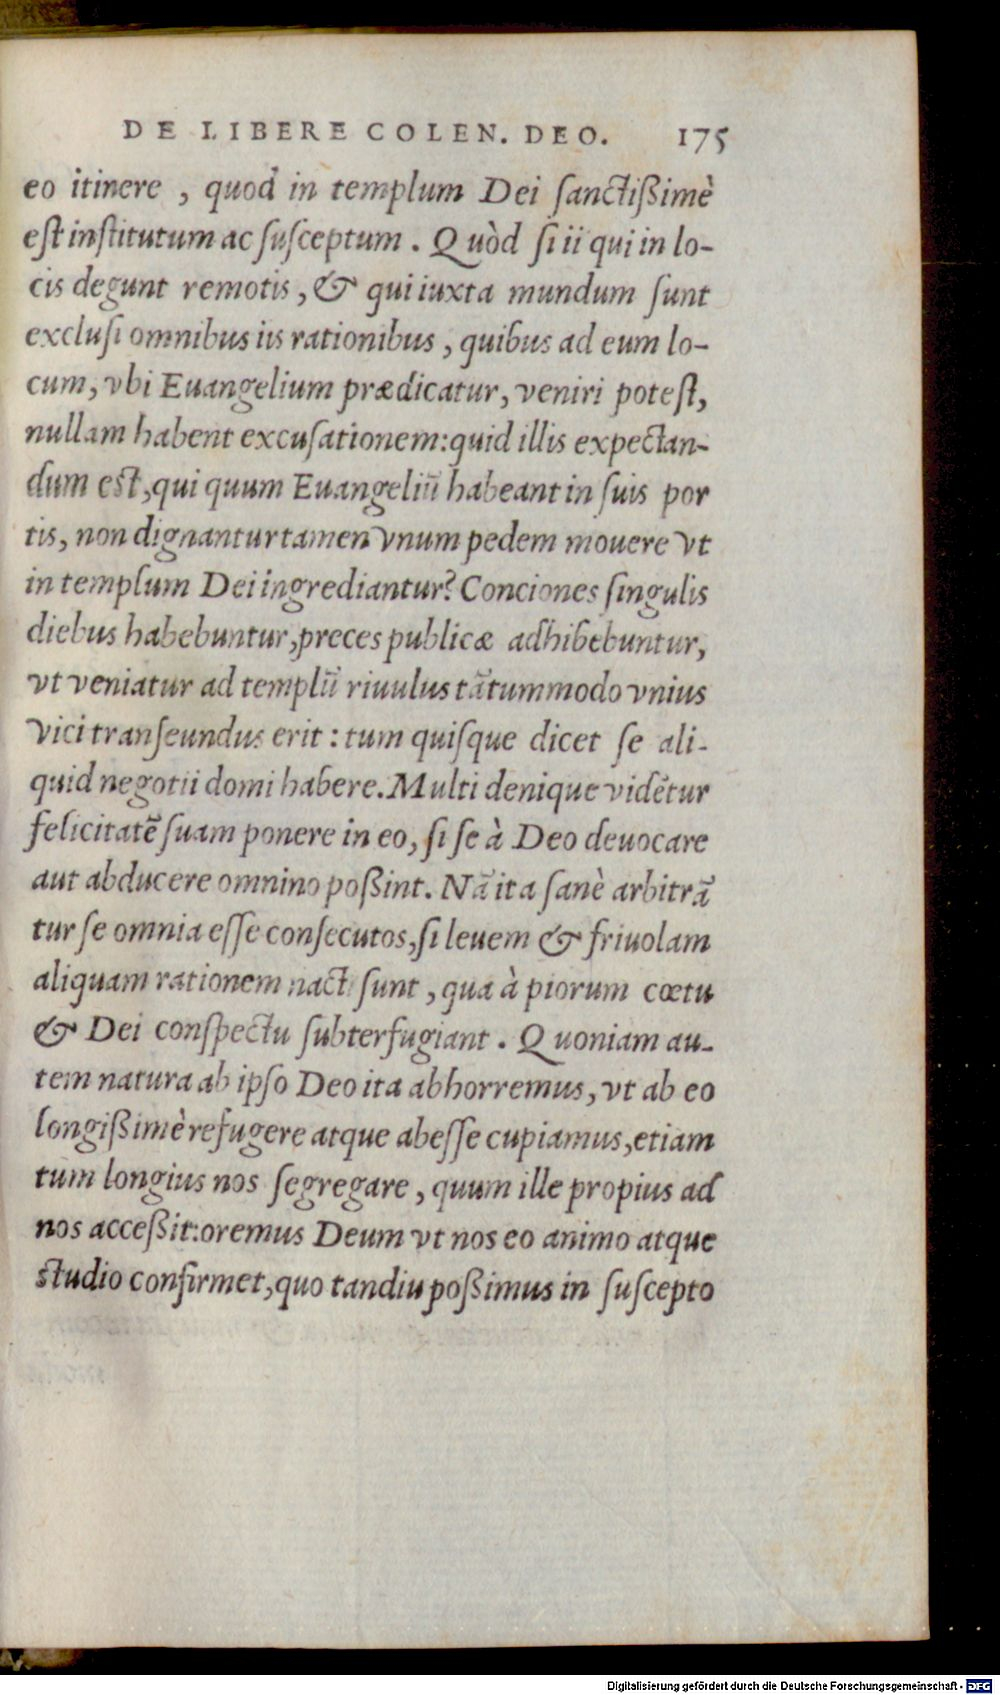 DE LIBERE COLEN. DEO. 175
eo itinere , quod in templum Dei ſanctißimè
eſt inſtitutum ac ſuſceptum . Quòd ſi ii qui in lo-
cis degunt remotis , & qui iuxta mundum ſunt
excluſi omnibus iis rationibus , quibus ad eum lo-
cum, vbi Euangelium prædicatur, veniri poteſt,
nullam habent excuſationem: quid illis expectan-
dum eſt, qui quum Euangeliũ habeant in ſuis por
tis, non dignantur tamen vnum pedem mouere vt
in templum Dei ingrediantur? Conciones ſingulis
diebus habebuntur, preces publicæ adhibebuntur,
vt veniatur ad templũ riuulus tãtummodo vnius
vici tranſeundus erit : tum quiſque dicet ſe ali-
quid negotii domi habere. Multi denique vidẽtur
felicitatẽ ſuam ponere in eo, ſi ſe à Deo deuocare
aut abducere omnino poßint. Nã ita ſanè arbitrã
tur ſe omnia eſſe conſecutos, ſi leuem & friuolam
aliquam rationem nacti ſunt , qua à piorum cœtu
& Dei conſpectu ſubterfugiant . Quoniam au-
tem natura ab ipſo Deo ita abhorremus, vt ab eo
longißimè refugere atque abeſſe cupiamus, etiam
tum longius nos ſegregare , quum ille propius ad
nos acceßit: oremus Deum vt nos eo animo atque
ſtudio confirmet, quo tandiu poßimus in ſuſcepto
Digitalisierung gefördert durch die Deutsche Forschungsgemeinschaft - DFG